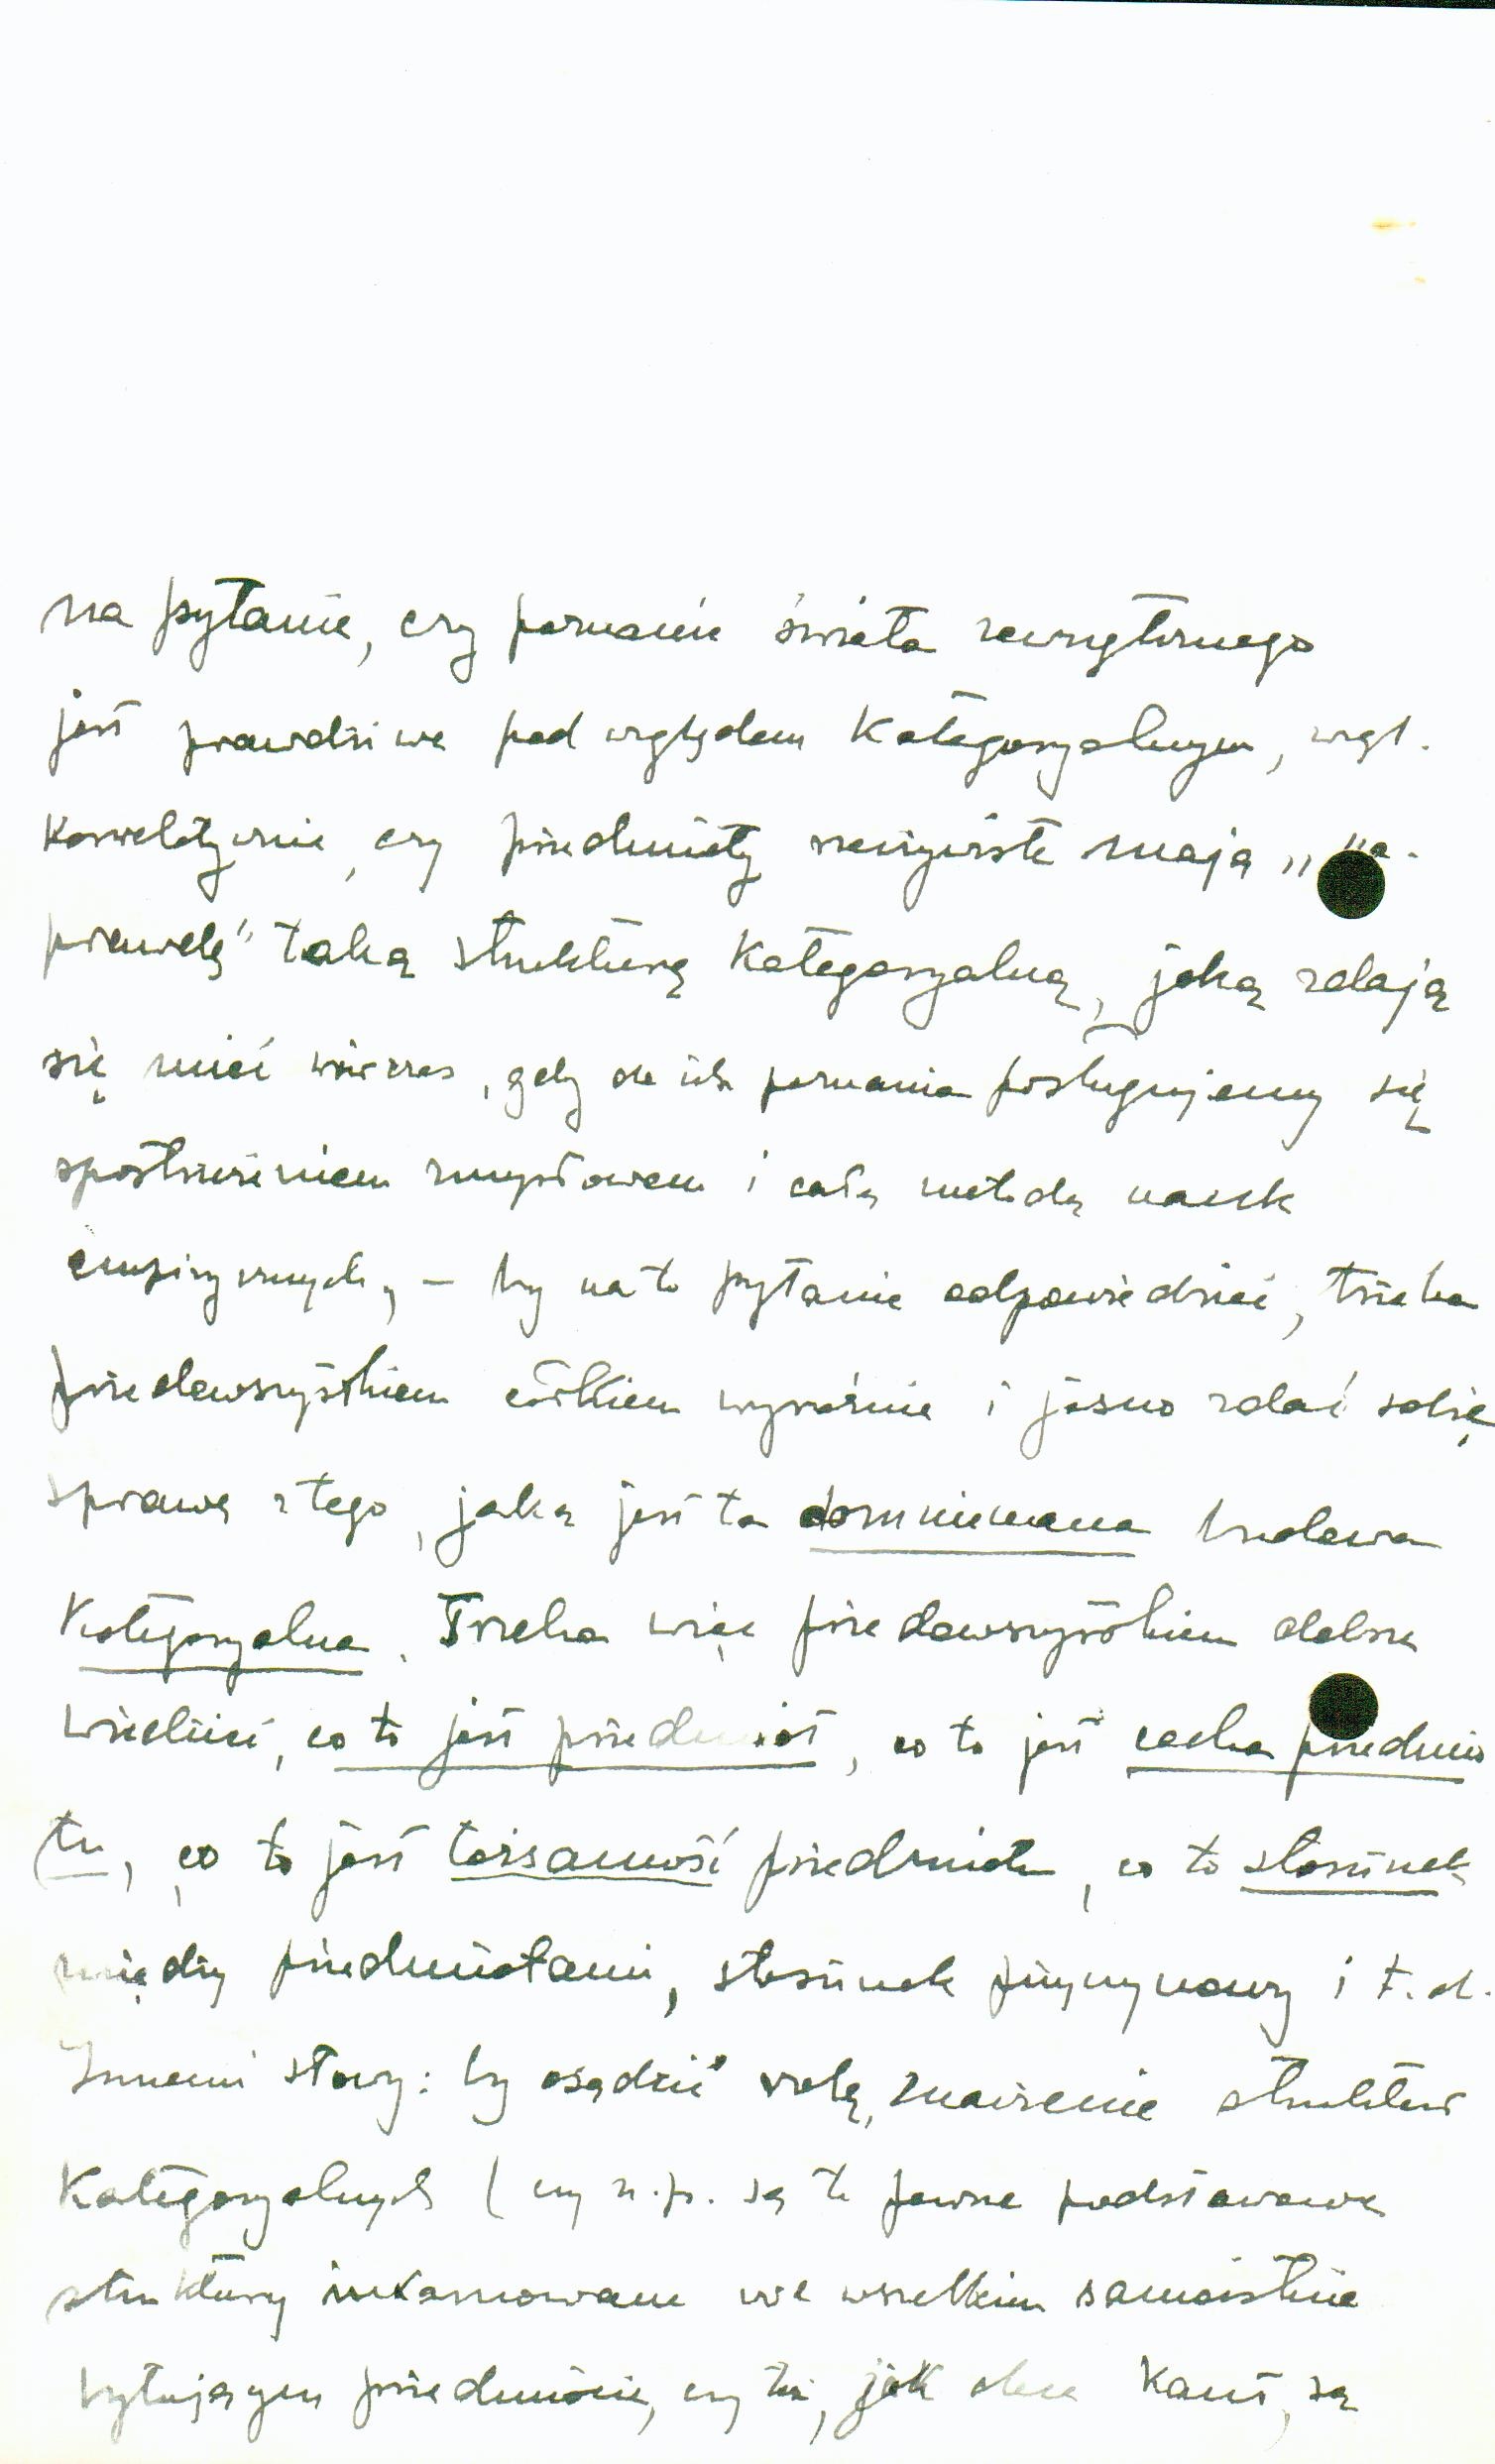 na pytanie, czy poznanie świata zewnętrznego
jest prawdziwe pod względem kategoryalnym, wzgl.
korrelatywnie, czy przedmioty rzeczywiste mają „na-
prawdę” taką strukturę kategoryalną, jaką zdają
się mieć wówczas, gdy do ich poznania posługujemy się
spostrzeżeniem zmysłowem i całą metodą nauk
empirycznych, – by na to pytanie odpowiedzieć, trzeba
przedewszystkiem całkiem wyraźnie i jasno zdać sobie
sprawę z tego, jaka jest ta domniemana budowa
kategoryalna. Trzeba więc przedewszystkiem dobrze
wiedzieć, co to jest przedmiot, co to jest cecha przedmio
tu, co to jest tożsamość przedmiotu, co to stosunek
między przedmiotami, stosunek przyczynowy i t. d.
Innemi słowy: by osądzić rolę, znaczenie struktur
kategoryalnych (czy n. p. są to pewne podstawowe
struktury inkarnowane we wszelkim samoistnie
bytującym przedmiocie, czy też, jak chce Kant, są